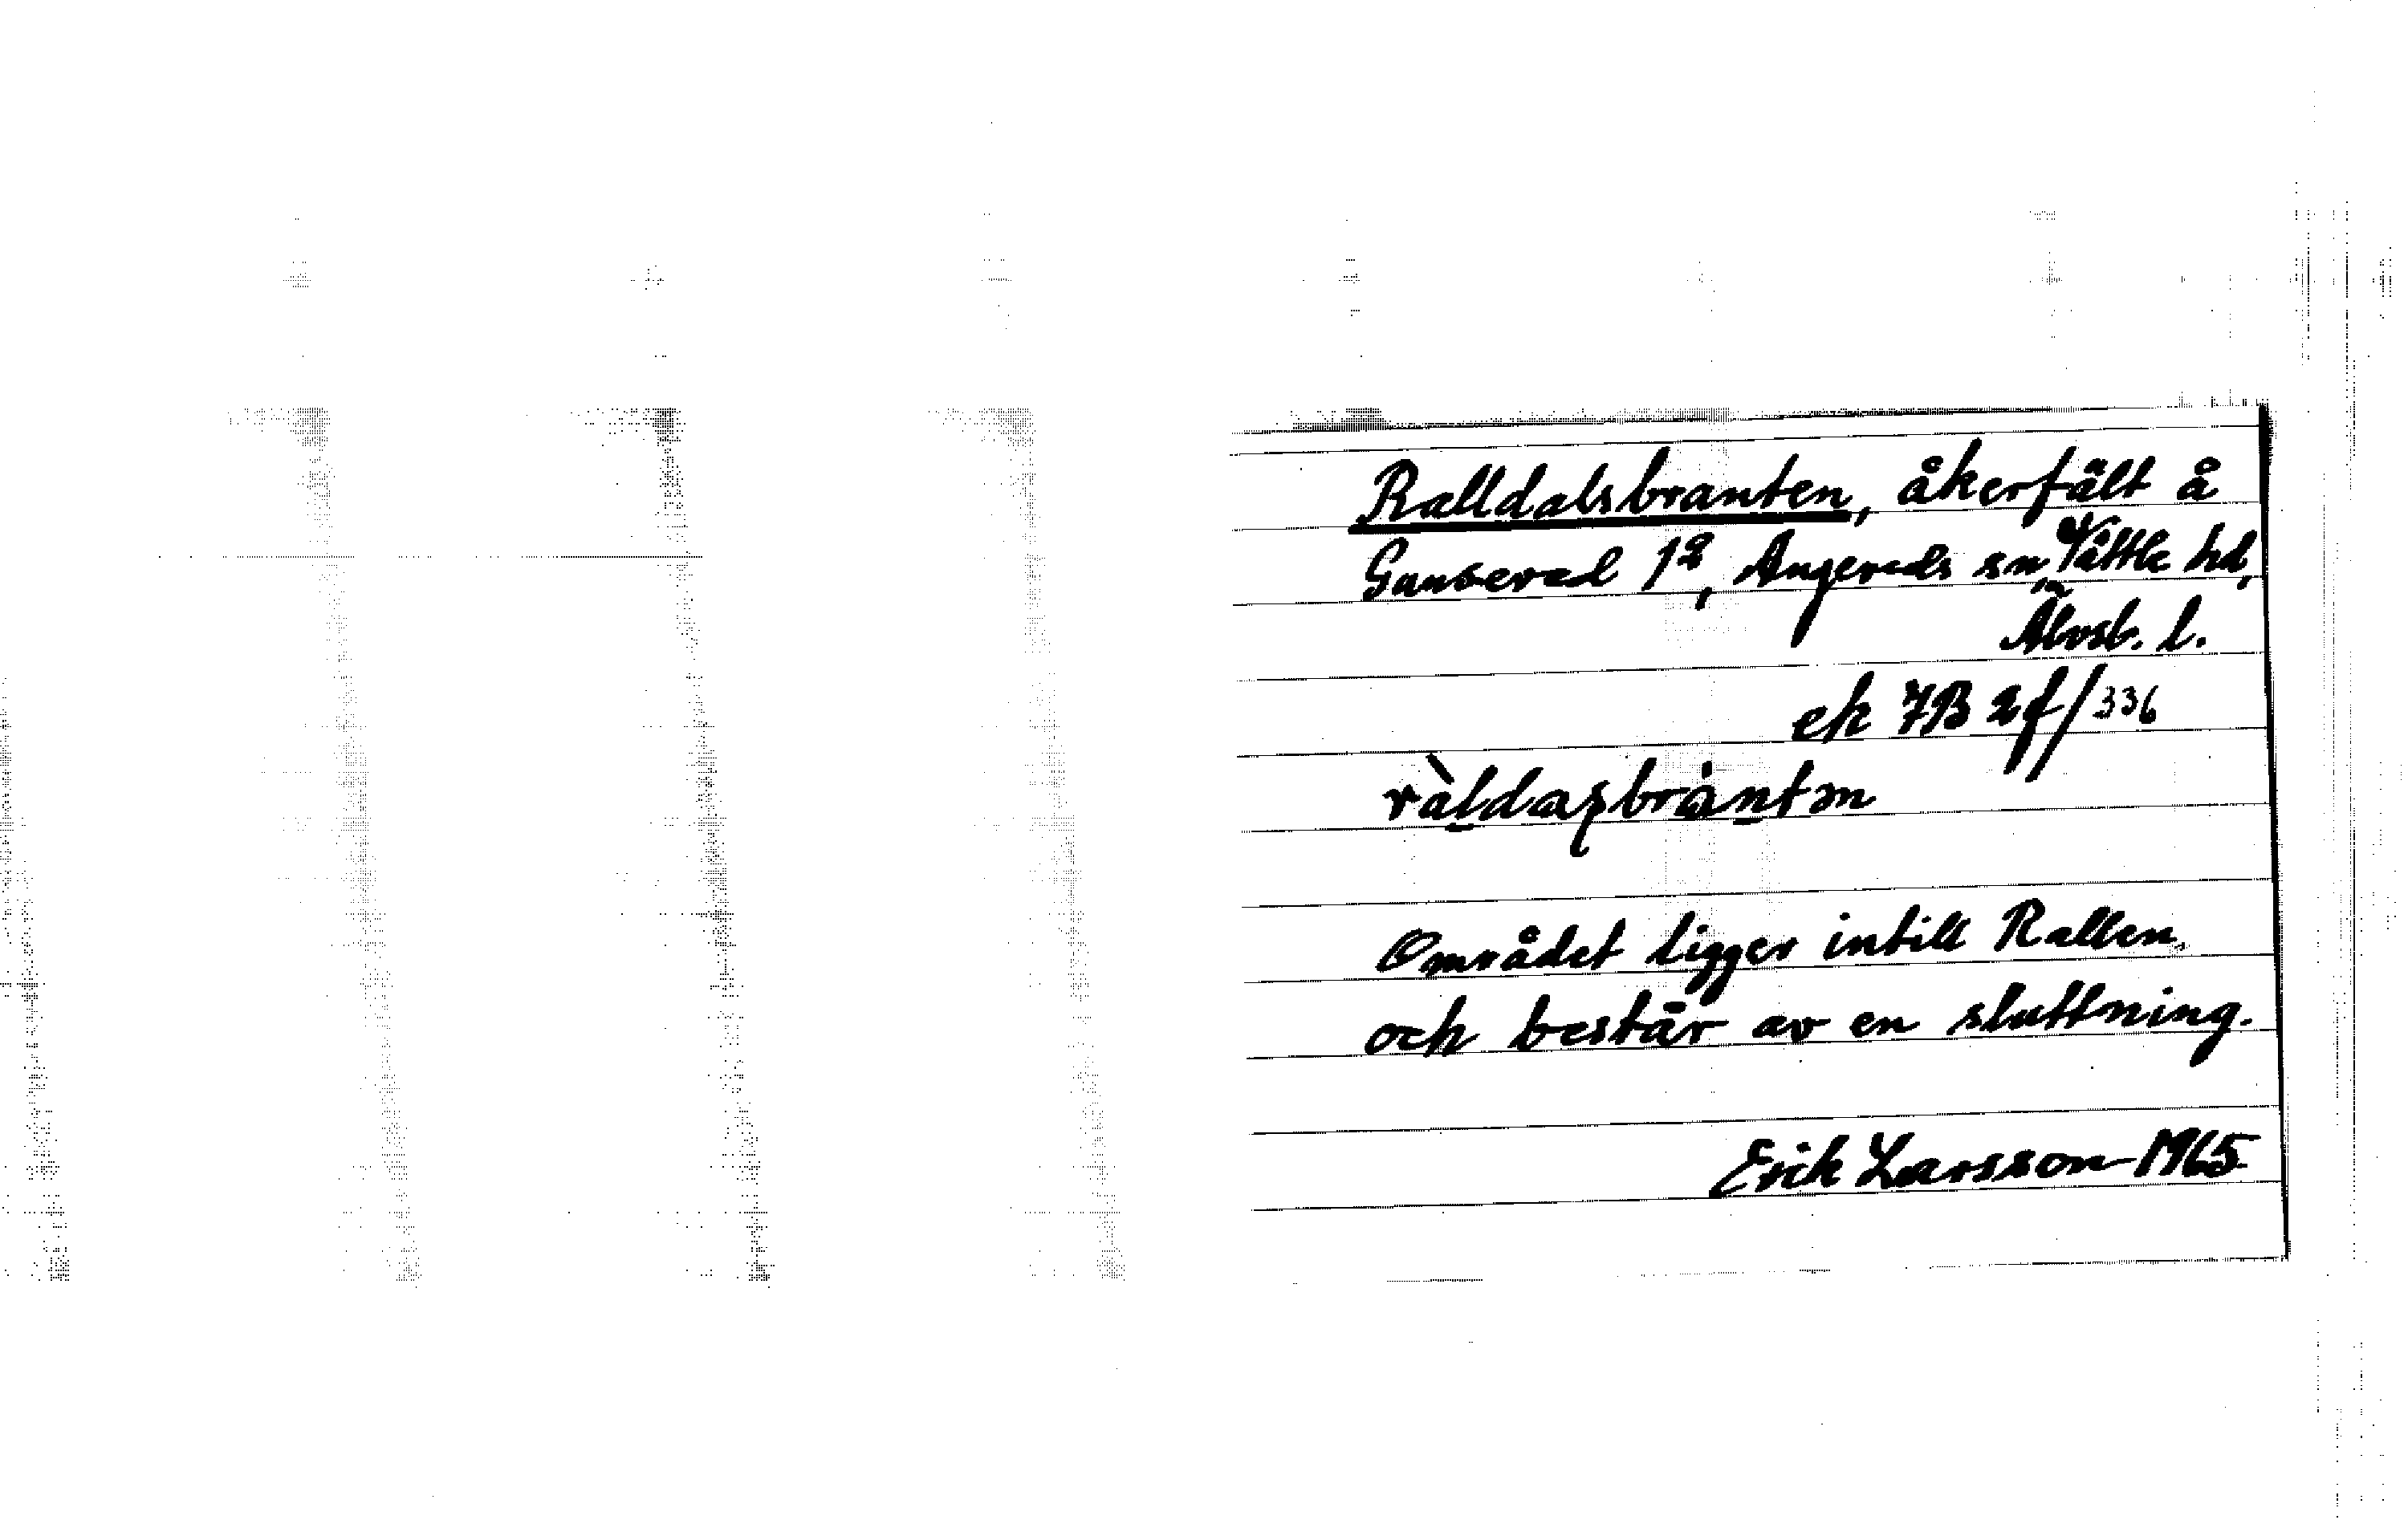 Ralldalsbranten, åkerfält å
Gunnered 1², Angereds sn, Vättle hd,
Älvsb. l.
ek 7B 2f/336
Området ligger intill Rallen.
och består av en sluttning.
Erik Larsson 1965